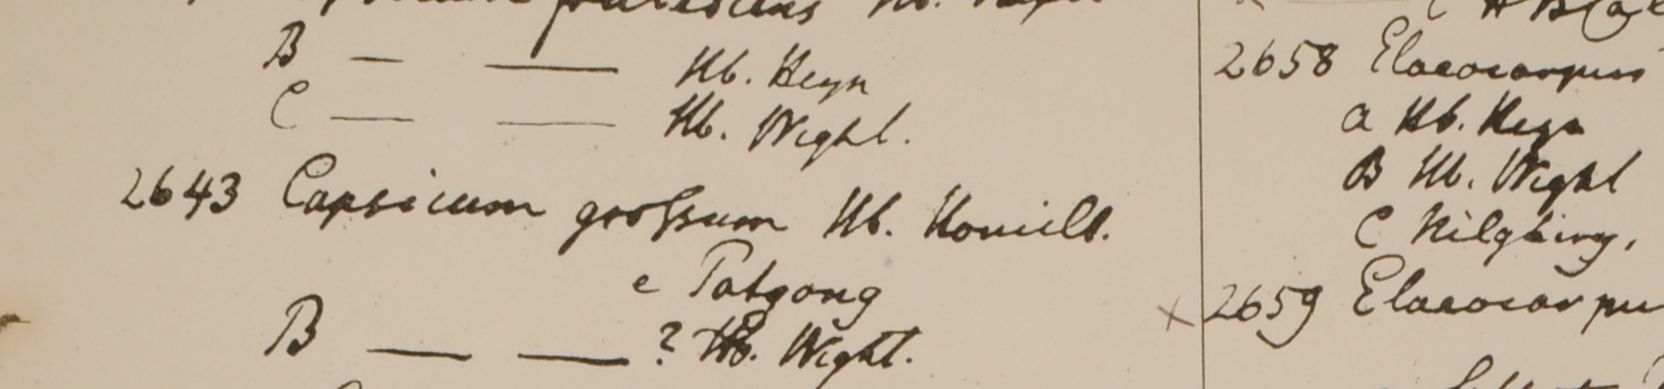 B — — Hb. Heyn
C — — Hb. Wight.
2643 Capsicum grossum Hb. Roxb.
e Patgong
B — — ? Hb. Wight.
2658 Elaeocarpus
a Hb. Heyn
B Hb. Wight
C Nilghiry.
× 2659 Elaeocarpu